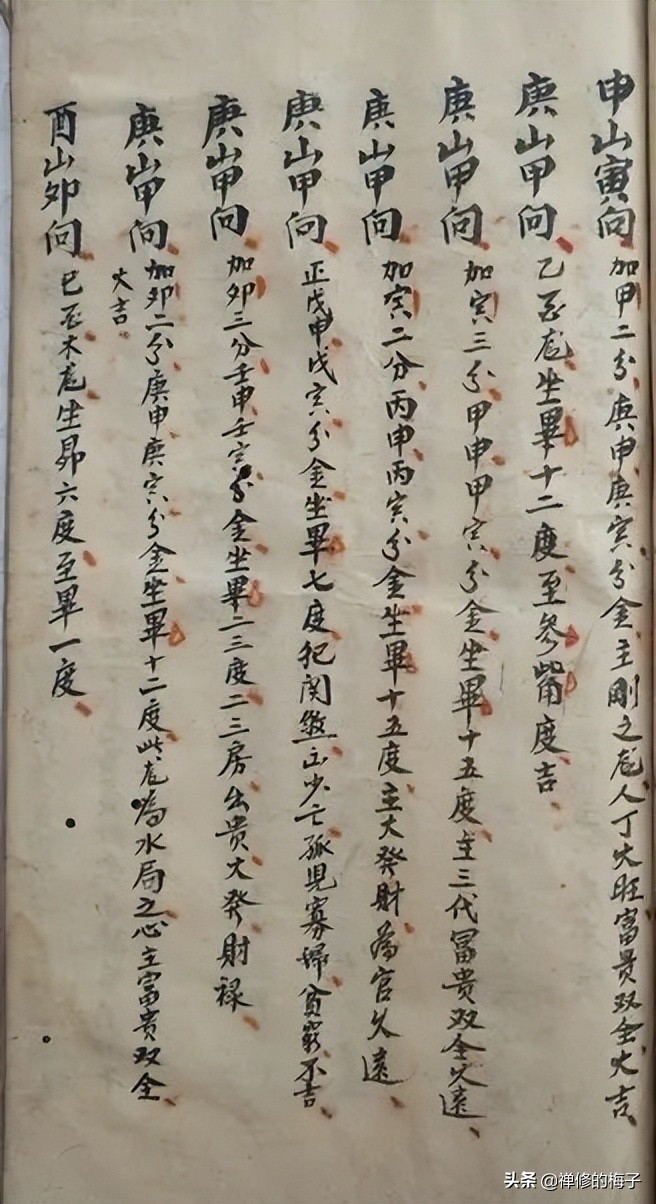 申山寅向 加甲二分庚申庚寅分金主剛之龙人丁大旺富貴双全大吉
庚山甲向 乙至龙坐畢十二度至参觜度吉
庚山甲向 加寅三分甲申甲寅分金坐畢十五度主三代冨貴双全久遠
庚山甲向 加寅二分丙申丙寅分金坐畢十五度主大發財為官久遠
庚山甲向 正戊申戊寅分金坐畢七度犯関煞少亡孤児寡婦貧窮不吉
庚山甲向 加卯三分壬申壬寅分金坐畢二三度二三房出贵大癸財禄
庚山甲向 加卯二分庚申庚寅分金坐畢十二度此龙為水局之心主富贵双全
大吉
酉山卯向 巳至木龙坐昴六度至畢一度
头条 @禅修的梅子